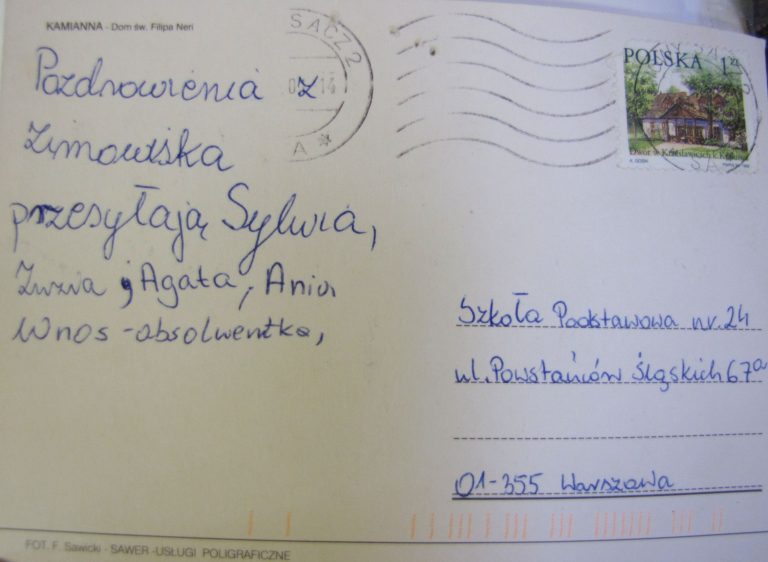 KAMIANNA - Dom św. Filipa Neri
Pozdrowienia z
Zimowiska
przesyłają Sylwia,
Zuzia, Agata, Ania
Wnos - absolwentka,
SĄCZ 2
POLSKA 1 zł
Szkoła Podstawowa nr. 24
ul. Powstańców Śląskich 67a
01-355 Warszawa
FOT. F. Sawicki - SAWER - USŁUGI POLIGRAFICZNE